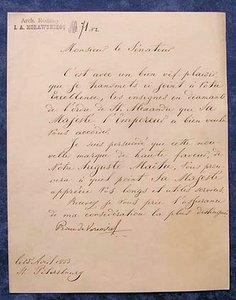 Arch. Rodziny
I. A. MORAWSKIEGO
№ 71.
Monsieur le Sénateur
C'est avec un bien vif plaisir,
que je transmets ci joint à Votre
Excellence, les insignes en diamants
de l'ordre de St. Alexandre que Sa
Majesté l'Empereur a bien voulu
Vous accorder.
Je suis persuadé que cette nou-
velle marque de haute faveur, de
Notre Auguste Maître, Vous prou-
vera à quel point Sa Majesté
apprécie Vos longs et utiles services.
Recevez je Vous prie l'assurance
de ma considération la plus distinguée
le 15 Avril 1883
St. Pétersbourg